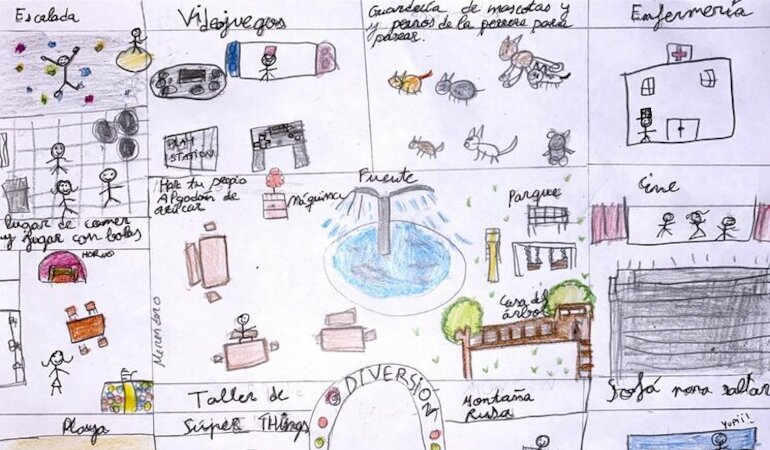 Escalada
Videojuegos
Guardería de mascotas y
y perros de la perrera para
pasear.
Enfermería
PLAY
STATION
lugar de comer
y jugar con bolas
Haz tu propio
Algodón de
azúcar
Máquina
Fuente
Parque
Cine
HORNO
Merendero
Casa del
árbol
Taller de
Súper THings
DIVERSIÓN
Montaña
Rusa
Sofá para saltar
Playa
YUPII!